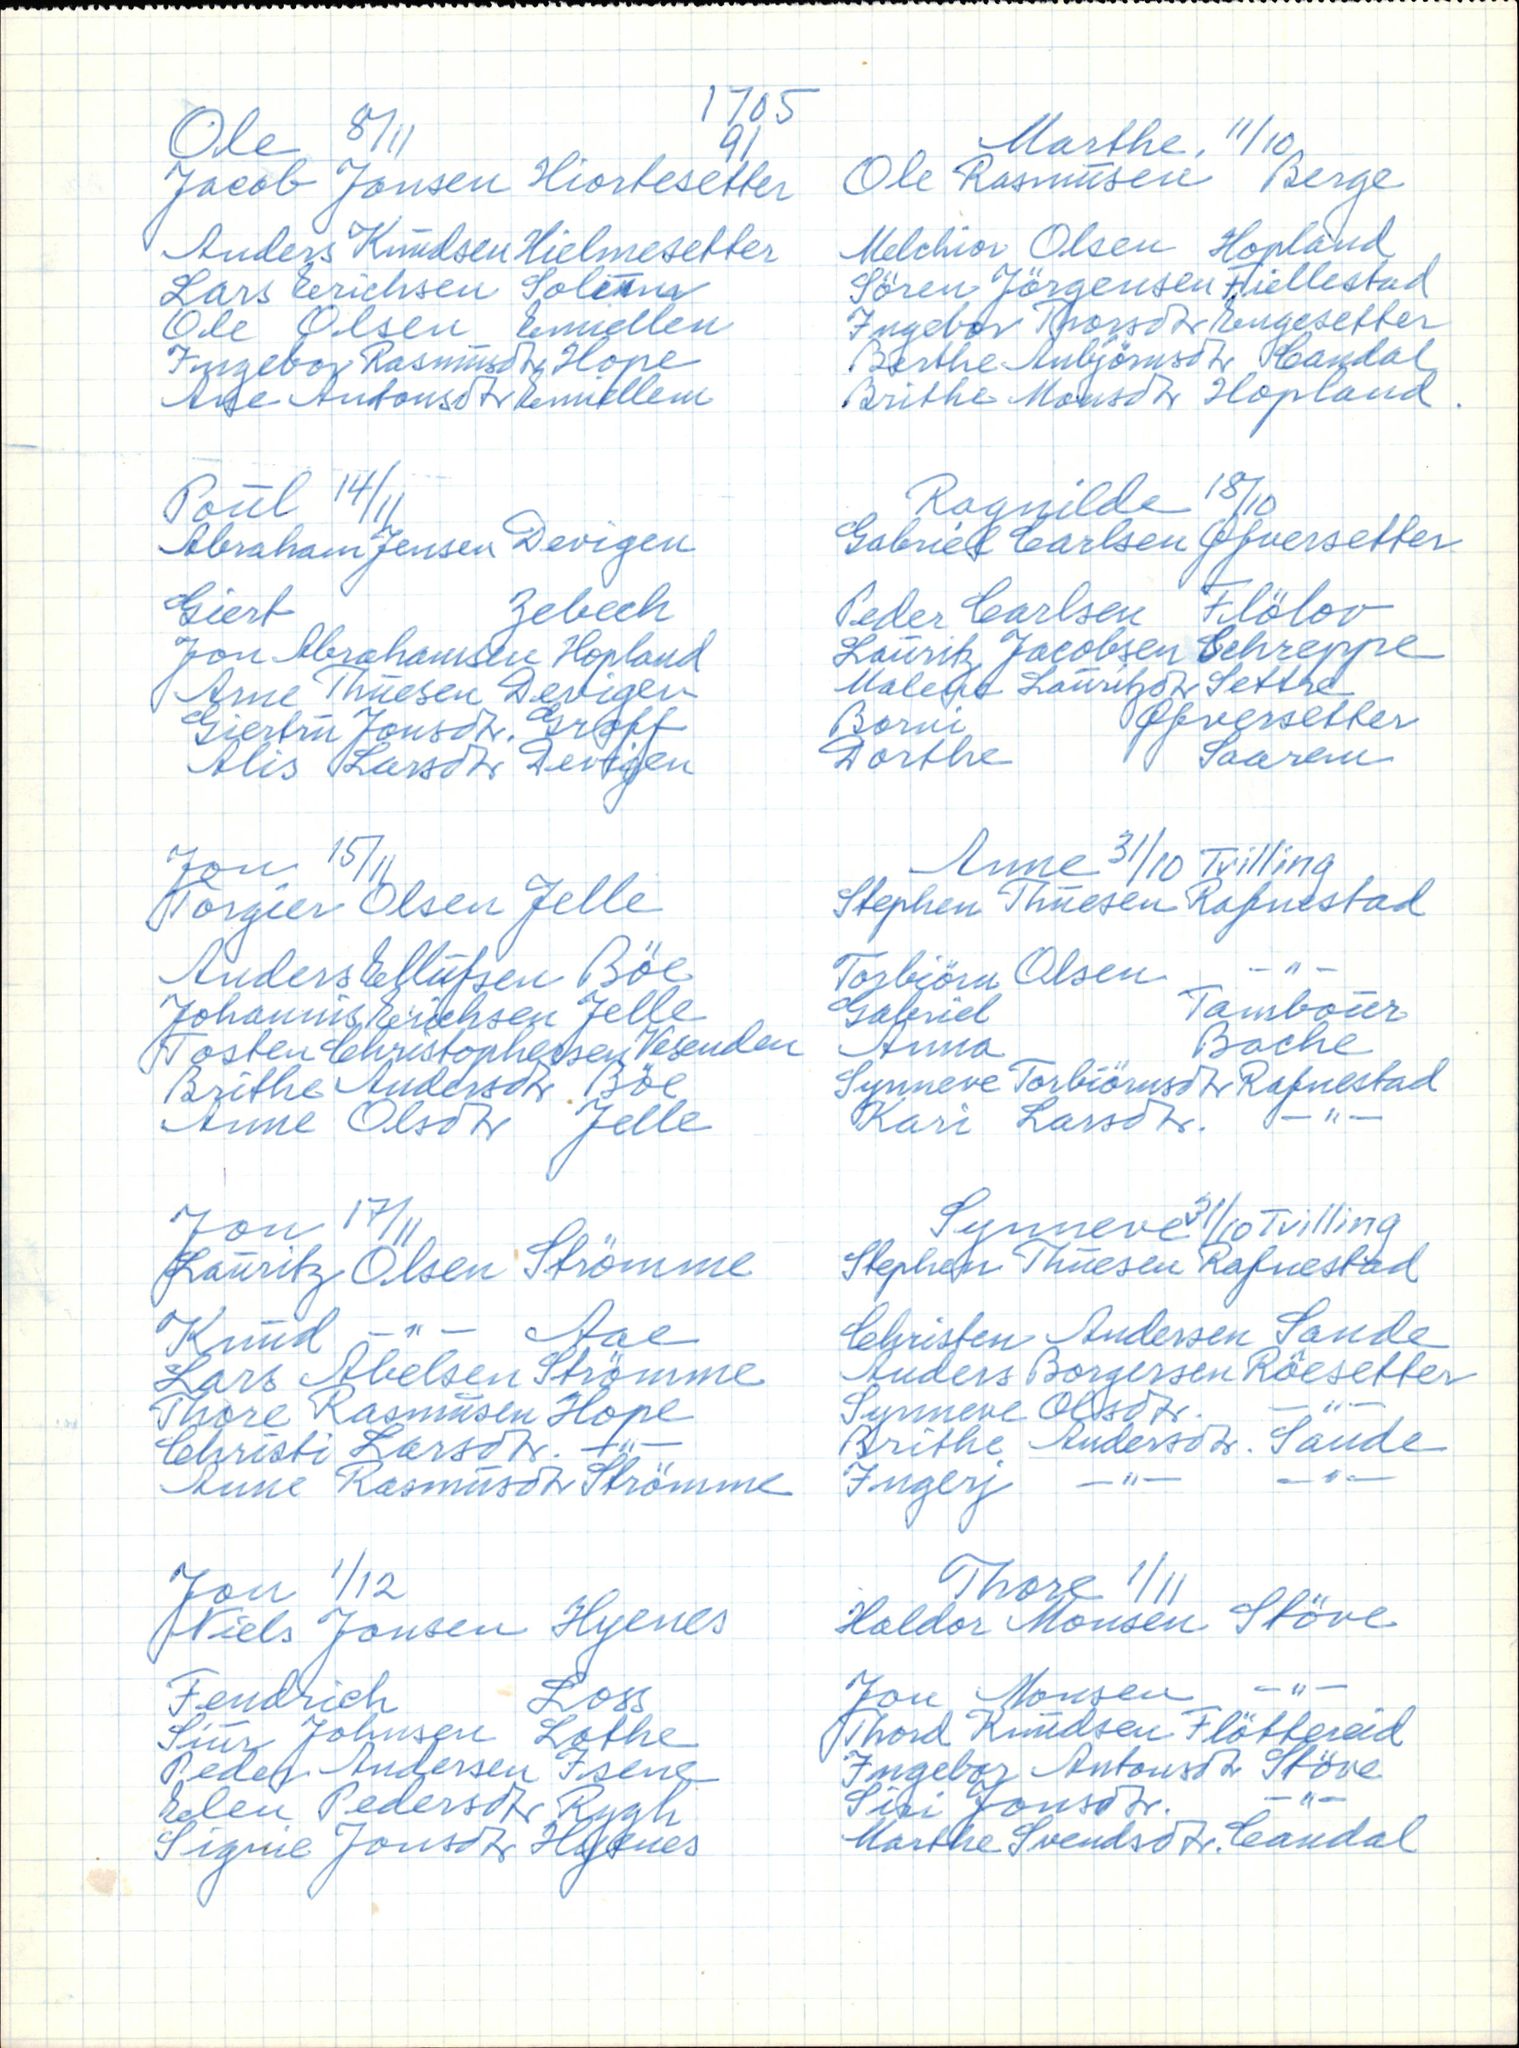 1705
91
Ole 8/11
Jacob Jonsen Hiortesetter
Anders Knudsen Hielmesetter
Lars Erichsen
Ole Olsen Emiellen
Ingebor Rasmusdtr Hope
Ane Antonsdtr Emiellem
Poul 14/11
Abraham Jensen Devigen
Giert Zebech
Jon Abrahamsen Hopland
Arne Thuesen Devigen
Giertru Jonsdtr. Groff
Alis Larsdtr Devigen
Jon 15/11
Torgier Olsen Jelle
Anders Ellufsen Böe
Johannis Erichsen Jelle
Tosten Christophersen Vesenden
Brithe Andersdtr Böe
Anne Olsdtr Jelle
Jon 17/11
Lauritz Olsen Strömme
Knud —"— Aae
Lars Abelsen Strömme
Thore Rasmusen Hope
Christi Larsdtr. —"—
Anne Rasmusdtr Strömme
Jon 1/12
Niels Jonsen Hyenes
Fendrich Loss
Siur Johnsen Lothe
Peder Andersen Isene
Elen Pedersdtr Rygh
Signie Jonsdtr Hyenes
Marthe. 11/10
Ole Rasmusen Berge
Melchior Olsen Hopland
Sören Jörgensen Fiellestad
Ingebor Thorsdtr Engesetter
Berthe Anbjörnsdtr Candal
Brithe Monsdtr Hopland.
Ragnilde 18/10
Gabriel Carlsen Øfversetter
Peder Carlsen Flölov
Lauritz Jacobsen Schreppe
Malene Lauritzdtr Sethre
Borni Øfversetter
Dorthe Saarem
Anne 31/10 Tvilling
Stephen Thuesen Rafnestad
Torbiörn Olsen —"—
Gabriel Tambour
Anna Bache
Synneve Torbiörnsdtr Rafnestad
Kari Larsdtr. —"—
Synneve 31/10 Tvilling
Stephen Thuesen Rafnestad
Christen Andersen Sande
Anders Borgersen Röesetter
Synneve Olsdtr. —"—
Brithe Andersdtr. Sande
Ingerj —"— —"—
Thore 1/11
Haldor Monsen Stöve
Jon Monsen —"—
Thord Knudsen Flöttereid
Ingebor Antonsdtr Stöve
Siri Jonsdtr. —"—
Marthe Svendsdtr. Candal